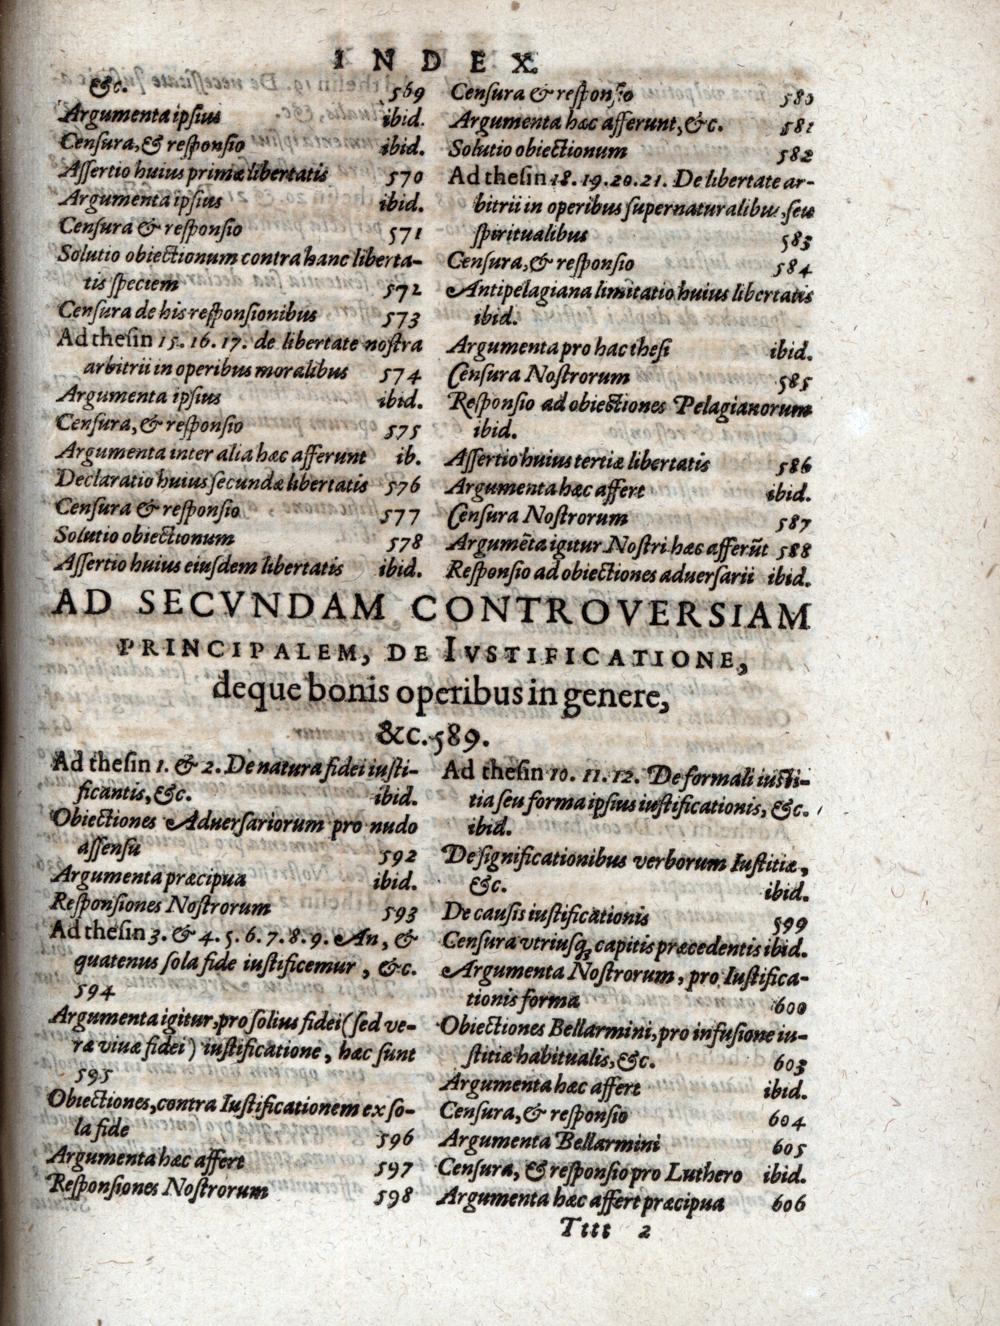 INDEX
&c. 569
Argumenta ipsius ibid.
Censura, & responsio ibid.
Assertio huius primæ libertatis 570
Argumenta ipsius ibid.
Censura & responsio 571
Solutio obiectionum contra hanc liberta-
tis speciem 572
Censura de his responsionibus 573
Ad thesin 15. 16. 17. de libertate nostra
arbitrii in operibus moralibus 574
Argumenta ipsius ibid.
Censura, & responsio 575
Argumenta inter alia hæc afferunt ib.
Declaratio huius secundæ libertatis 576
Censura & responsio 577
Solutio obiectionum 578
Assertio huius eiusdem libertatis ibid.
Censura & responsio 580
Argumenta hæc afferunt, &c. 581
Solutio obiectionum 582
Ad thesin 18. 19. 20. 21. De libertate ar-
bitrii in operibus supernaturalibus, seu
spiritualibus 583
Censura, & responsio 584
Antipelagiana limitatio huius libertatis
ibid.
Argumenta pro hac thesi ibid.
Censura Nostrorum 585
Responsio ad obiectiones Pelagianorum
ibid.
Assertio huius tertiæ libertatis 586
Argumenta hæc affert ibid.
Censura Nostrorum 587
Argumēta igitur Nostri hæc afferūt 588
Responsio ad obiectiones adversarii ibid.
AD SECVNDAM CONTROVERSIAM
PRINCIPALEM, DE IVSTIFICATIONE,
deque bonis operibus in genere,
&c. 589.
Ad thesin 1. & 2. De natura fidei iusti-
ficantis, &c. ibid.
Obiectiones Adversariorum pro nudo
assensu 592
Argumenta præcipua ibid.
Responsiones Nostrorum 593
Ad thesin 3. & 4. 5. 6. 7. 8. 9. An, &
quatenus sola fide iustificemur, &c.
594
Argumenta igitur, pro solius fidei (sed ve-
ræ vivæ fidei) iustificatione, hæc sunt
595
Obiectiones, contra Iustificationem ex so-
la fide 596
Argumenta hæc affert 597
Responsiones Nostrorum 598
Ad thesin 10. 11. 12. De formali iusti-
tia seu forma ipsius iustificationis, &c.
ibid.
De significationibus verborum Iustitiæ,
&c. ibid.
De causis iustificationis 599
Censura vtriusq; capitis præcedentis ibid.
Argumenta Nostrorum, pro Iustifica-
tionis forma 600
Obiectiones Bellarmini, pro infusione iu-
stitiæ habitualis, &c. 603
Argumenta hæc affert ibid.
Censura, & responsio 604
Argumenta Bellarmini 605
Censura, & responsio pro Luthero ibid.
Argumenta hæc affert præcipua 606
Tttt 2